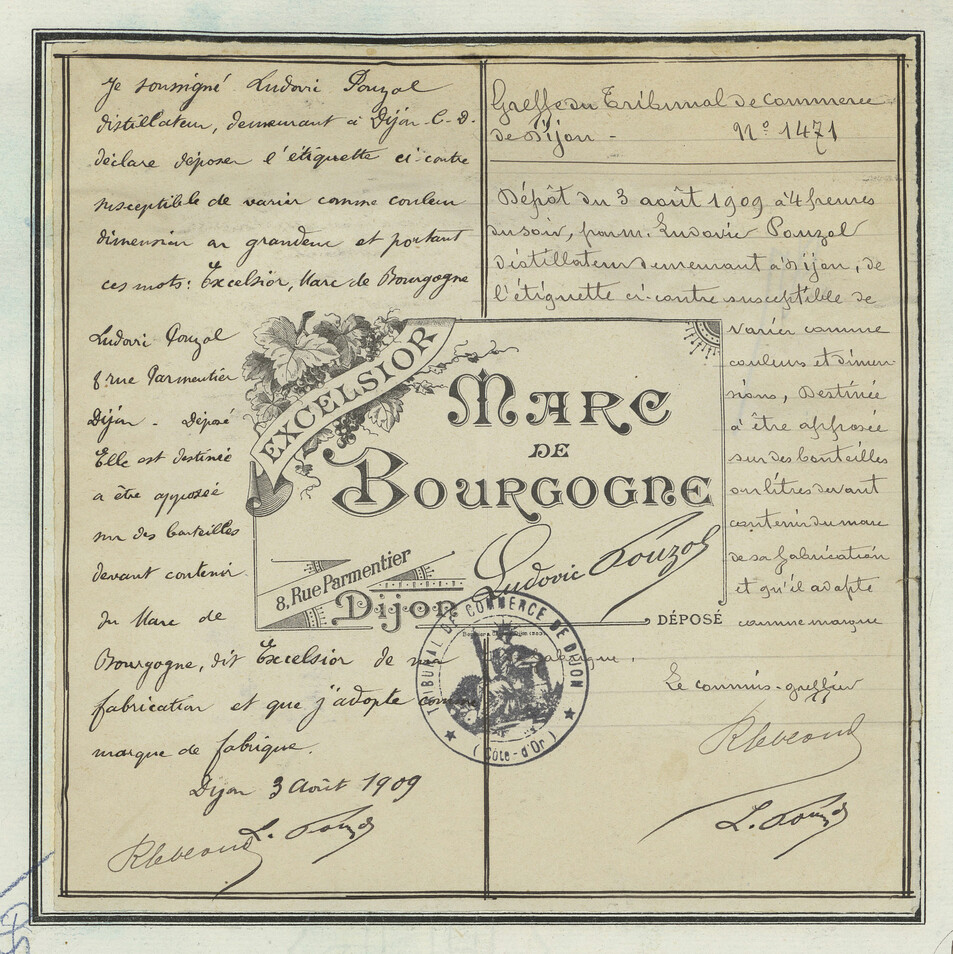 Je soussigné Ludovic Pouzol
distillateur, demeurant à Dijon C-D.
déclare déposer l'étiquette ci-contre
susceptible de varier comme couleur
dimension ou grandeur et portant
ces mots: Excelsior, Marc de Bourgogne
Ludovic Pouzol
8 rue Parmentier
Dijon - Déposé
Elle est destinée
a être apposée
sur des bouteilles
devant contenir
du Marc de
Bourgogne, dit Excelsior de ma
fabrication et que j'adopte comme
marque de fabrique.
Dijon 3 Août 1909
L. Pouzol
Greffe du Tribunal de Commerce
de Dijon - N° 1471
Dépôt du 3 août 1909 à 4 heures
du soir, par M. Ludovic Pouzol
distillateur demeurant à Dijon, de
l'étiquette ci-contre susceptible de
varier comme
couleurs et dimen-
sions, destinée
à être apposée
sur des bouteilles
ou litres devant
contenir du marc
de sa fabrication
et qu'il adopte
comme marque
de fabrique.
Le commis-greffier
L. Pouzol
EXCELSIOR
MARC
DE
BOURGOGNE
Ludovic Pouzol
8, Rue Parmentier
Dijon
DÉPOSÉ
TRIBUNAL DE COMMERCE DE DIJON
(Côte-d'Or)